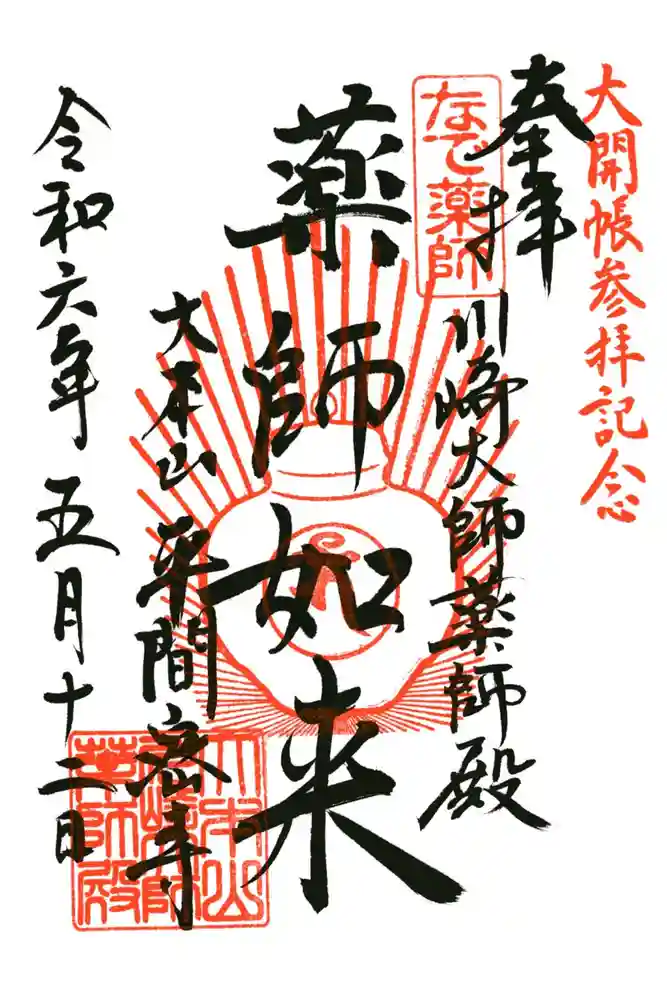 大開帳参拝記念
奉拝
なで薬師
川崎大師薬師殿
薬師如来
大本山
平間寺
令和六年五月十二日
大本山
川崎大師
薬師殿